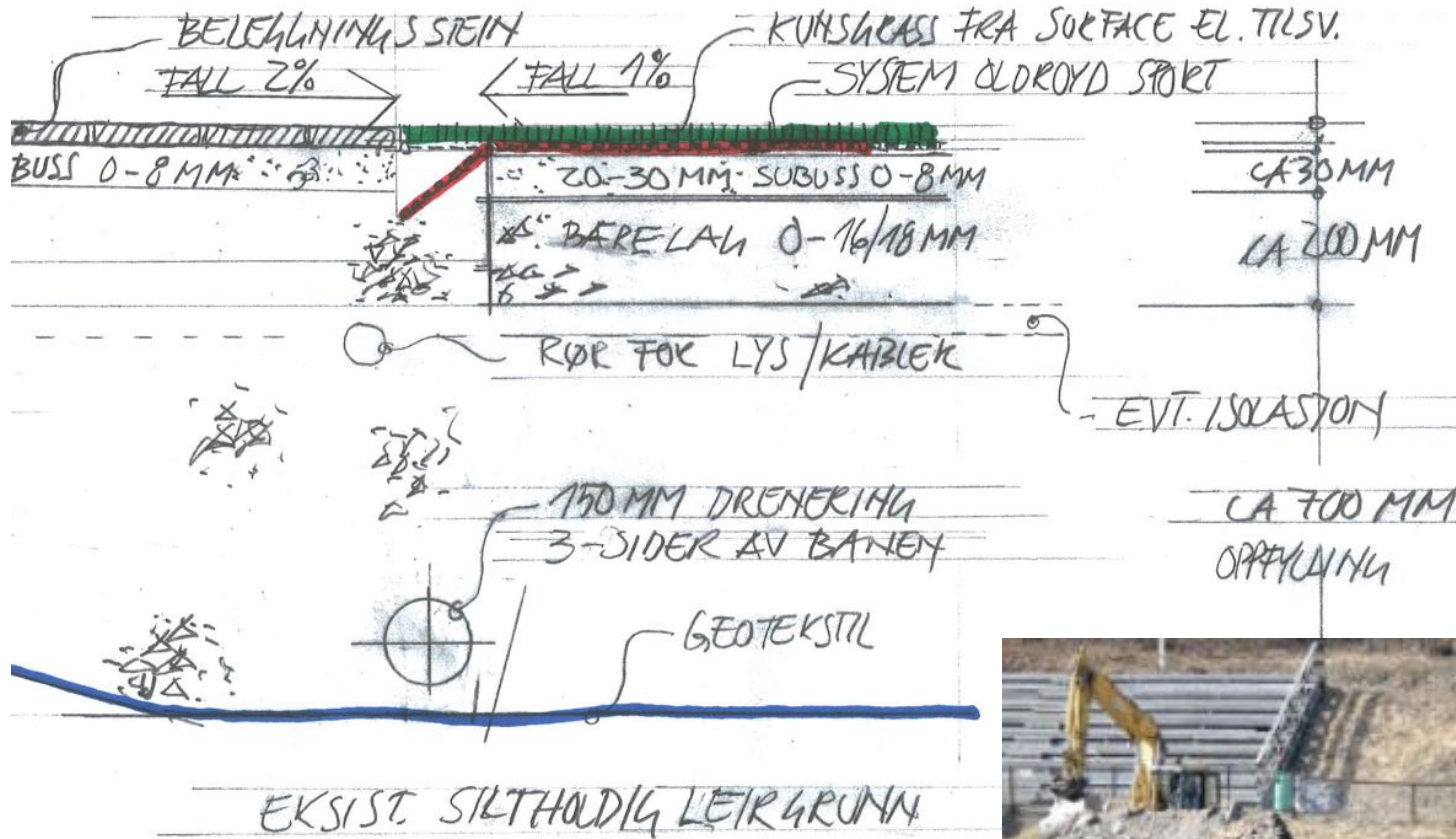 BELEGGNINGSSTEIN
KUNSGRASS FRA SURFACE EL. TILSV.
FALL 2%
FALL 1%
SYSTEM OLDROYD SPORT
BUSS 0-8 MM
20-30 MM SUBUSS 0-8 MM
CA 30 MM
BÆRELAG 0-16/18 MM
CA 200 MM
RØR FOR LYS/KABLER
EVT. ISOLASJON
150 MM DRENERING
3-SIDER AV BANEN
CA 700 MM
OPPFYLNING
GEOTEKSTIL
EKSIST. SILTHOLDIG LEIRGRUNN